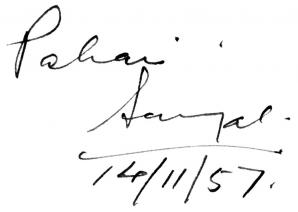 Pahari
Sanyal.
14/11/57.